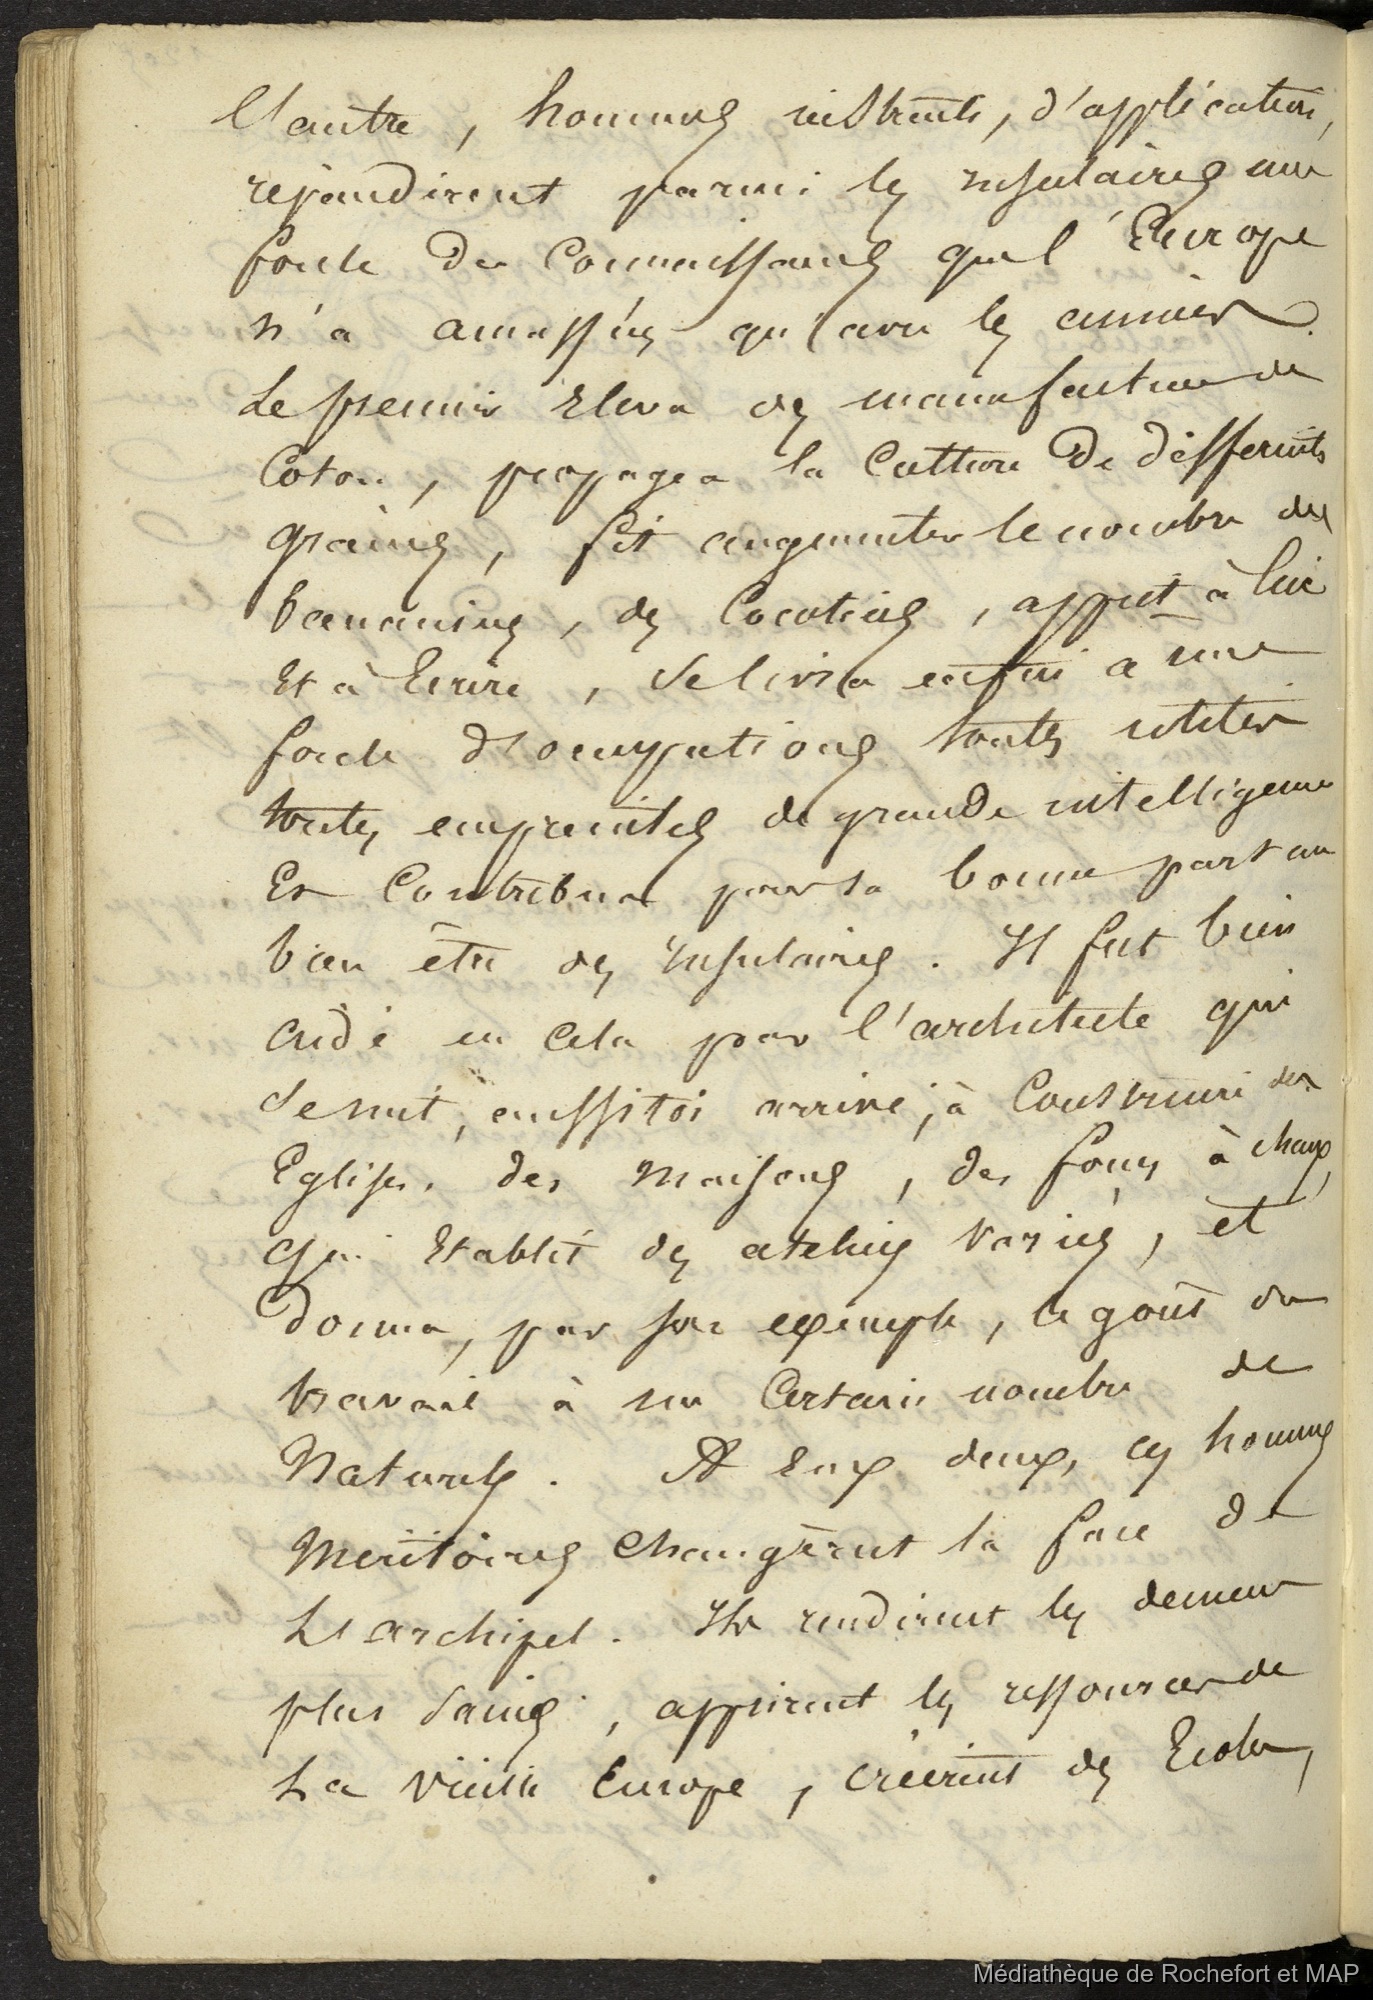 L'autre, hommes instruits, d'application,
repandirent parmi les insulaires une
foule de Connaissances que l'Europe
n'a amassées qu'avec les années.
Le premier Eleva des manufactures de
Coton, propagea la Culture de differents
graines, fit augmenter le nombre des
bananiers, des Cocotiers, apprit à lire
Et à Ecrire, se livra enfin a une
foule d'occupations toutes utiles
toutes empreintes de grande intelligence
Et Contribua pour sa bonne part au
bien être des insulaires. Il fut bien
aidé en cela par l'architecte qui
se mit, aussitôt arrivé, à Construire des
Eglises, des maisons, des fours à chaux,
qui Etablit des ateliers variés, et
donna, par son exemple, le goût du
travail à un Certain nombre de
Naturels. A Eux deux, ces hommes
méritoires changèrent la face de
L'archipel. Ils rendirent les demeures
plus saines, apprirent les ressources de
La vieille Europe, créèrent des Ecoles,
Médiathèque de Rochefort et MAP